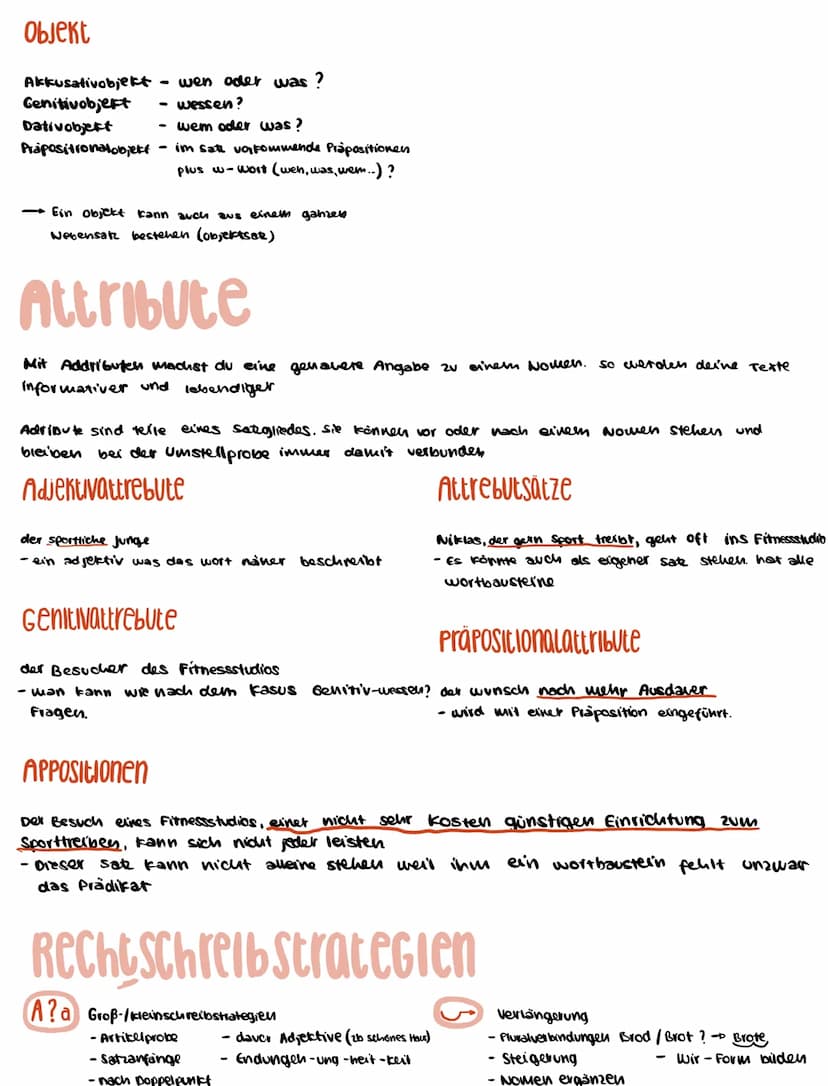 Objekt
Akkusativobjekt - wen oder was?
Genitivobjekt - wessen?
Dativobjekt - wem oder was?
Präpositionalobjekt - im Satz vorkommende Präpositionen
plus w-Wort (wen, was, wem..)?
→ Ein Objekt kann auch aus einem ganzen
Nebensatz bestehen (Objektsatz)
Attribute
Mit Addributen machst du eine genauere Angabe zu einem Nomen. So werden deine Texte
informativer und lebendiger
Adribute sind teile eines Satzgliedes. Sie können vor oder nach einem Nomen stehen und
bleiben bei der Umstellprobe immer damit verbunden
Adjektivattrebute
der sportliche Junge
- ein adjektiv was das wort näher beschreibt
Genitivattrebute
der Besucher des Fitnessstudios
- man kann wie nach dem Kasus Genitiv-wessen?
Fragen.
Attrebutsätze
Niklas, der gern Sport treibt, geht oft ins Fitnessstudio
- Es könnte auch als eigener satz stehen. hat alle
wortbausteine
Präpositionalattribute
der wunsch nach mehr Ausdauer
- wird mit einer Präposition eingeführt.
Appositionen
Der Besuch eines Fitnessstudios, einer nicht sehr kosten günstigen Einrichtung zum
Sporttreiben, kann sich nicht jeder leisten
- Dieser satz kann nicht alleine stehen weil ihm ein wortbaustein fehlt unzwar
das Prädikat
Rechtschreibstrategien
A?a Groß-/kleinschreibstrategien
- Artikelprobe - davor Adjektive (zb schönes Haus)
- Satzanfänge - Endungen -ung -heit -keit
- nach Doppelpunkt
Verlängerung
- Pluralverbindungen Brod / Brot? → Brote
- Steigerung - Wir-Form bilden
- Nomen ergänzen